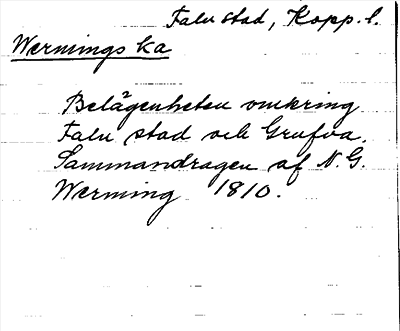 Falu stad, Kopp. l.
Wernings ka
Belägenheten omkring
Falu stad och Grufva.
Sammandragen af N. G.
Werming 1810.